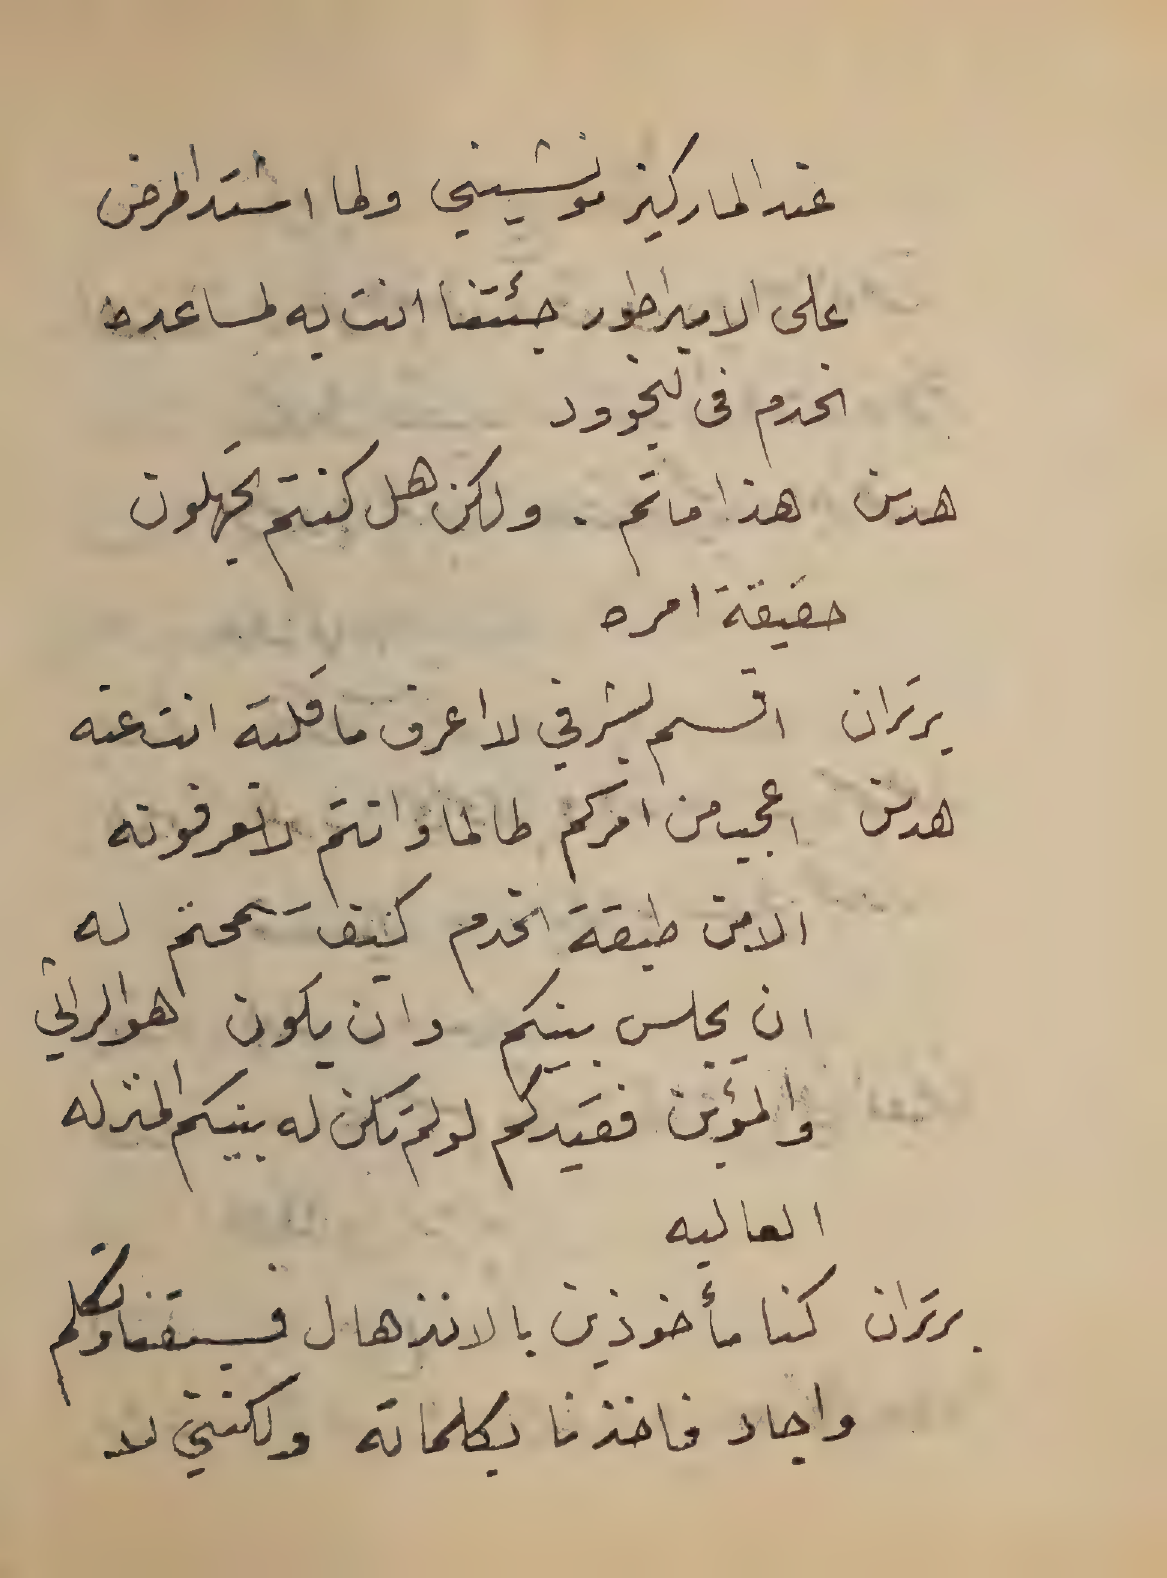 عند الماركيز مونشيني ولما اشتد المرض
على الامبراطور جئتنا انت به لمساعدة
الخدم فى لنجوود
هدسن هذا ما تم . ولكن هل كنتم تجهلون
حقيقة امره
برتران اقسم بشرفي لا اعرف ما قلته انت عنه
هدسن اعجب من امركم طالما وانتم لا تعرفونه
الا من طبقة الخدم كيف سمحتم له
ان يجلس بينكم وان يكون هو الراثي
والمؤبن فقيدكم لو لم تكن له بينكم المنزله
العاليه
برتران كنا مأخوذين بالانذهال فسبقنا وتكلم
واجاد فاخذنا بكلماته ولكنني لا